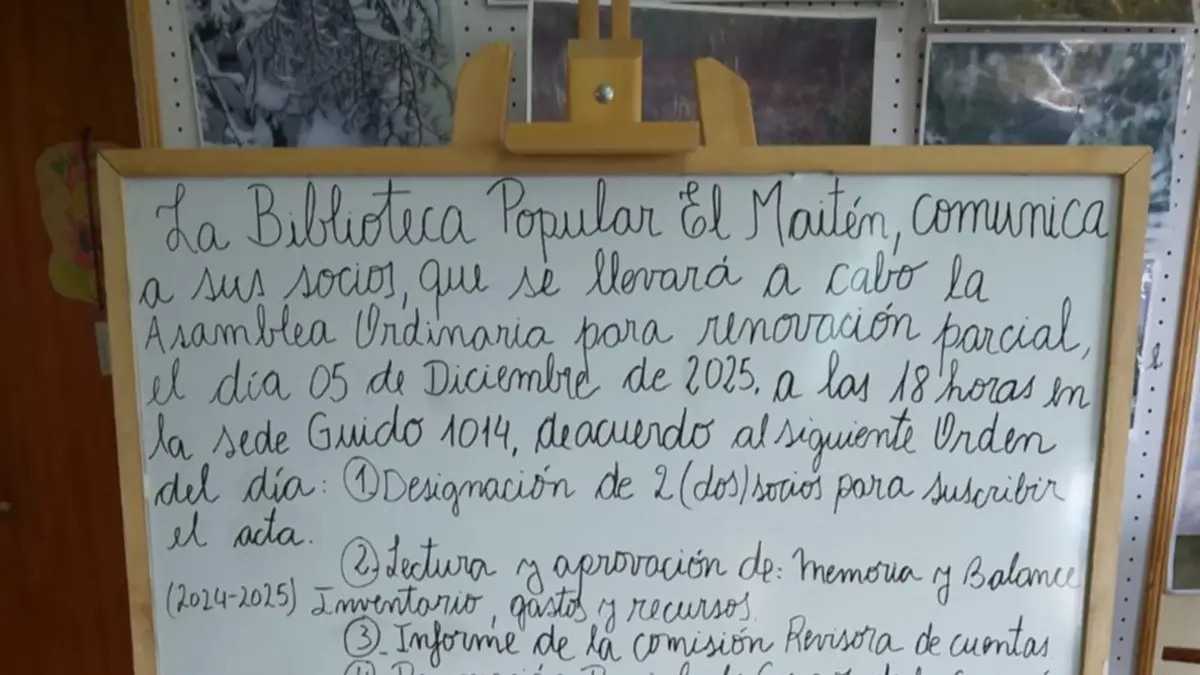 La Biblioteca Popular El Maitén, comunica
a sus socios, que se llevará a cabo la
Asamblea Ordinaria para renovación parcial,
el día 05 de Diciembre de 2025. a las 18 horas en
la sede Guido 1014, deacuerdo al siguiente Orden
del día: ① Designación de 2 (dos) socios para suscribir
el acta.
② Lectura y aprovación de: Memoria y Balance
(2024-2025) Inventario, gastos y recursos.
③. Informe de la comisión Revisora de cuentas